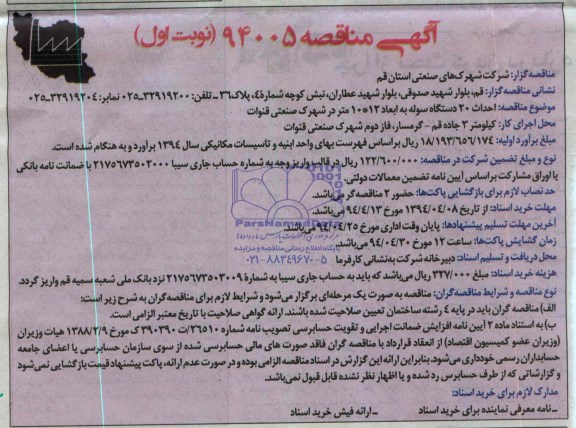 آگهی مناقصه ۹۴۰۰۵ (نوبت اول)
مناقصه‌گزار: شرکت شهرک‌های صنعتی استان قم
نشانی مناقصه‌گزار: قم، بلوار شهید صدوقی، بلوار شهید عطاران، نبش کوچه شماره۴، پلاک۳۶ ـ تلفن: ۳۲۹۱۹۲۰۰-۰۲۵ نمابر: ۳۲۹۱۹۲۰۴-۰۲۵
موضوع مناقصه: احداث ۲۰ دستگاه سوله به ابعاد ۱۲*۱۰ متر در شهرک صنعتی قنوات
محل اجرای کار: کیلومتر ۳ جاده قم – گرمسار، فاز دوم شهرک صنعتی قنوات
مبلغ برآورد اولیه: ۱۸/۱۹۳/۶۵۶/۱۷۴ ریال بر اساس فهرست بهای واحد ابنیه و تاسیسات مکانیکی سال ۱۳۹۴ برآورد و به هنگام شده است.
نوع و مبلغ تضمین شرکت در مناقصه: ۱۲۲/۶۰۰/۰۰۰ ریال در قالب واریز وجه به شماره حساب جاری سیبا ۲۱۷۵۶۷۳۵۰۲۰۰۰ یا ضمانت نامه بانکی
یا اوراق مشارکت براساس آیین نامه تضمین معاملات دولتی
حد نصاب لازم برای بازگشایی پاکت‌ها: حضور ۲ مناقصه‌گر می‌باشد.
مهلت خرید اسناد: از تاریخ ۱۳۹۴/۰۴/۰۸ مورخ ۹۴/۰۴/۱۳ می‌باشد.
آخرین مهلت تسلیم پیشنهادها: پایان وقت اداری مورخ ۹۴/۰۴/۲۵ می‌باشد.
زمان گشایش پاکت‌ها: ساعت ۱۲ مورخ ۹۴/۰۴/۳۰ می‌باشد.
محل دریافت و تسلیم اسناد: دبیرخانه شرکت به‌نشانی کارفرما
هزینه خرید اسناد: مبلغ ۳۲۷/۰۰۰ ریال می‌باشد که باید به حساب جاری سیبا به شمارهٔ ۲۱۷۵۶۷۳۵۰۳۰۰۹ نزد بانک ملی شعبه سمیه قم واریز گردد.
نوع مناقصه و شرایط مناقصه‌گران: مناقصه به صورت یک مرحله‌ای برگزار می‌شود و شرایط لازم برای مناقصه‌گران به شرح زیر است:
الف) مناقصه گران باید در پایه ۴ رشته ساختمان تعیین صلاحیت شده باشند. ارائه گواهی صلاحیت با تاریخ معتبر الزامی است.
ب) به استناد ماده ۲ آیین نامه افزایش ضمانت اجرایی و تقویت حسابرسی تصویب نامه شماره ۲۶۵۱۰/ت ۳۹۰۳۹۰ ک مورخ ۱۳۸۸/۲/۹ هیات وزیران
(وزیران عضو کمیسیون اقتصاد) از انعقاد قرارداد با مناقصه گران فاقد صورت های مالی حسابرسی شده از سوی سازمان حسابرسی یا اعضای جامعه
حسابداران رسمی خودداری می‌شود. بنابراین ارائه این گزارش در اسناد مناقصه الزامی بوده و در صورت عدم ارائه، پاکت پیشنهاد قیمت بازگشایی نمی‌شود
و گزارشاتی که از طرف حسابرس رد شده و یا اظهار نظر نشده قابل قبول نمی‌باشد.
مدارک لازم برای خرید اسناد:
ـ نامه معرفی نماینده برای خرید اسناد ـ ارائه فیش خرید اسناد
ParsNamadData
پایگاه اطلاع رسانی مناقصه و مزایده
۰۲۱-۸۸۳۴۹۶۷۰-۵